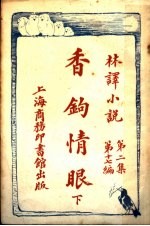 林譯小説
第二集
第十七編
香鉤情眼
下
上海商務印書館出版